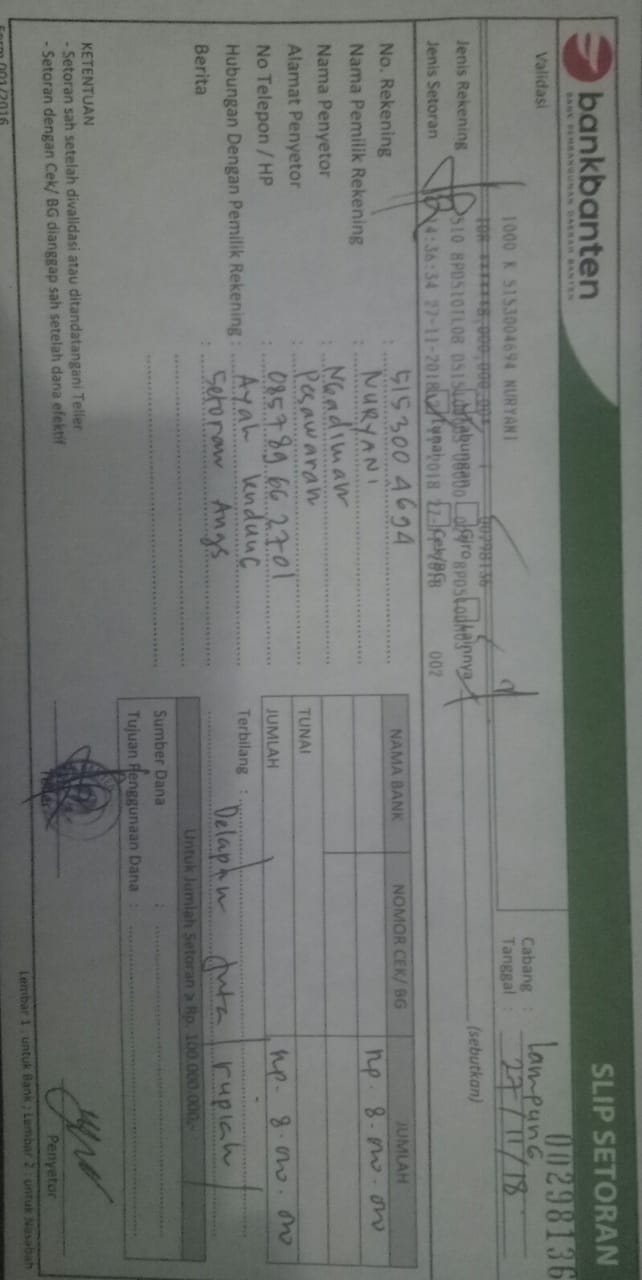 bankbanten
BANK PEMBANGUNAN DAERAH BANTEN
SLIP SETORAN
00298136
Validasi
1000 K 5153004694 NURYANI
Cabang : Lampung
Tanggal : 27/11/18
Jenis Rekening
Tabungan Giro Lainnya (sebutkan)
Jenis Setoran
4:36:34 27-11-2018
Tunai Cek/BG
002
No. Rekening : 515 300 4694
Nama Pemilik Rekening : NURYANI
Nama Penyetor : Ngadiman
Alamat Penyetor : Pesawaran
No Telepon / HP : 0857 89 66 2701
Hubungan Dengan Pemilik Rekening : Ayah kandung
Berita : Setoran Angs
NAMA BANK NOMOR CEK/ BG JUMLAH
Rp. 8.000.000
TUNAI
JUMLAH Rp. 8.000.000
Terbilang : Delapan Juta rupiah
Untuk Jumlah Setoran ≥ Rp. 100.000.000,-
Sumber Dana :
Tujuan Penggunaan Dana :
KETENTUAN
- Setoran sah setelah divalidasi atau ditandatangani Teller
- Setoran dengan Cek/ BG dianggap sah setelah dana efektif
Teller
Penyetor
Form 001/2016
Lembar 1 : untuk Bank ; Lembar 2 : untuk Nasabah